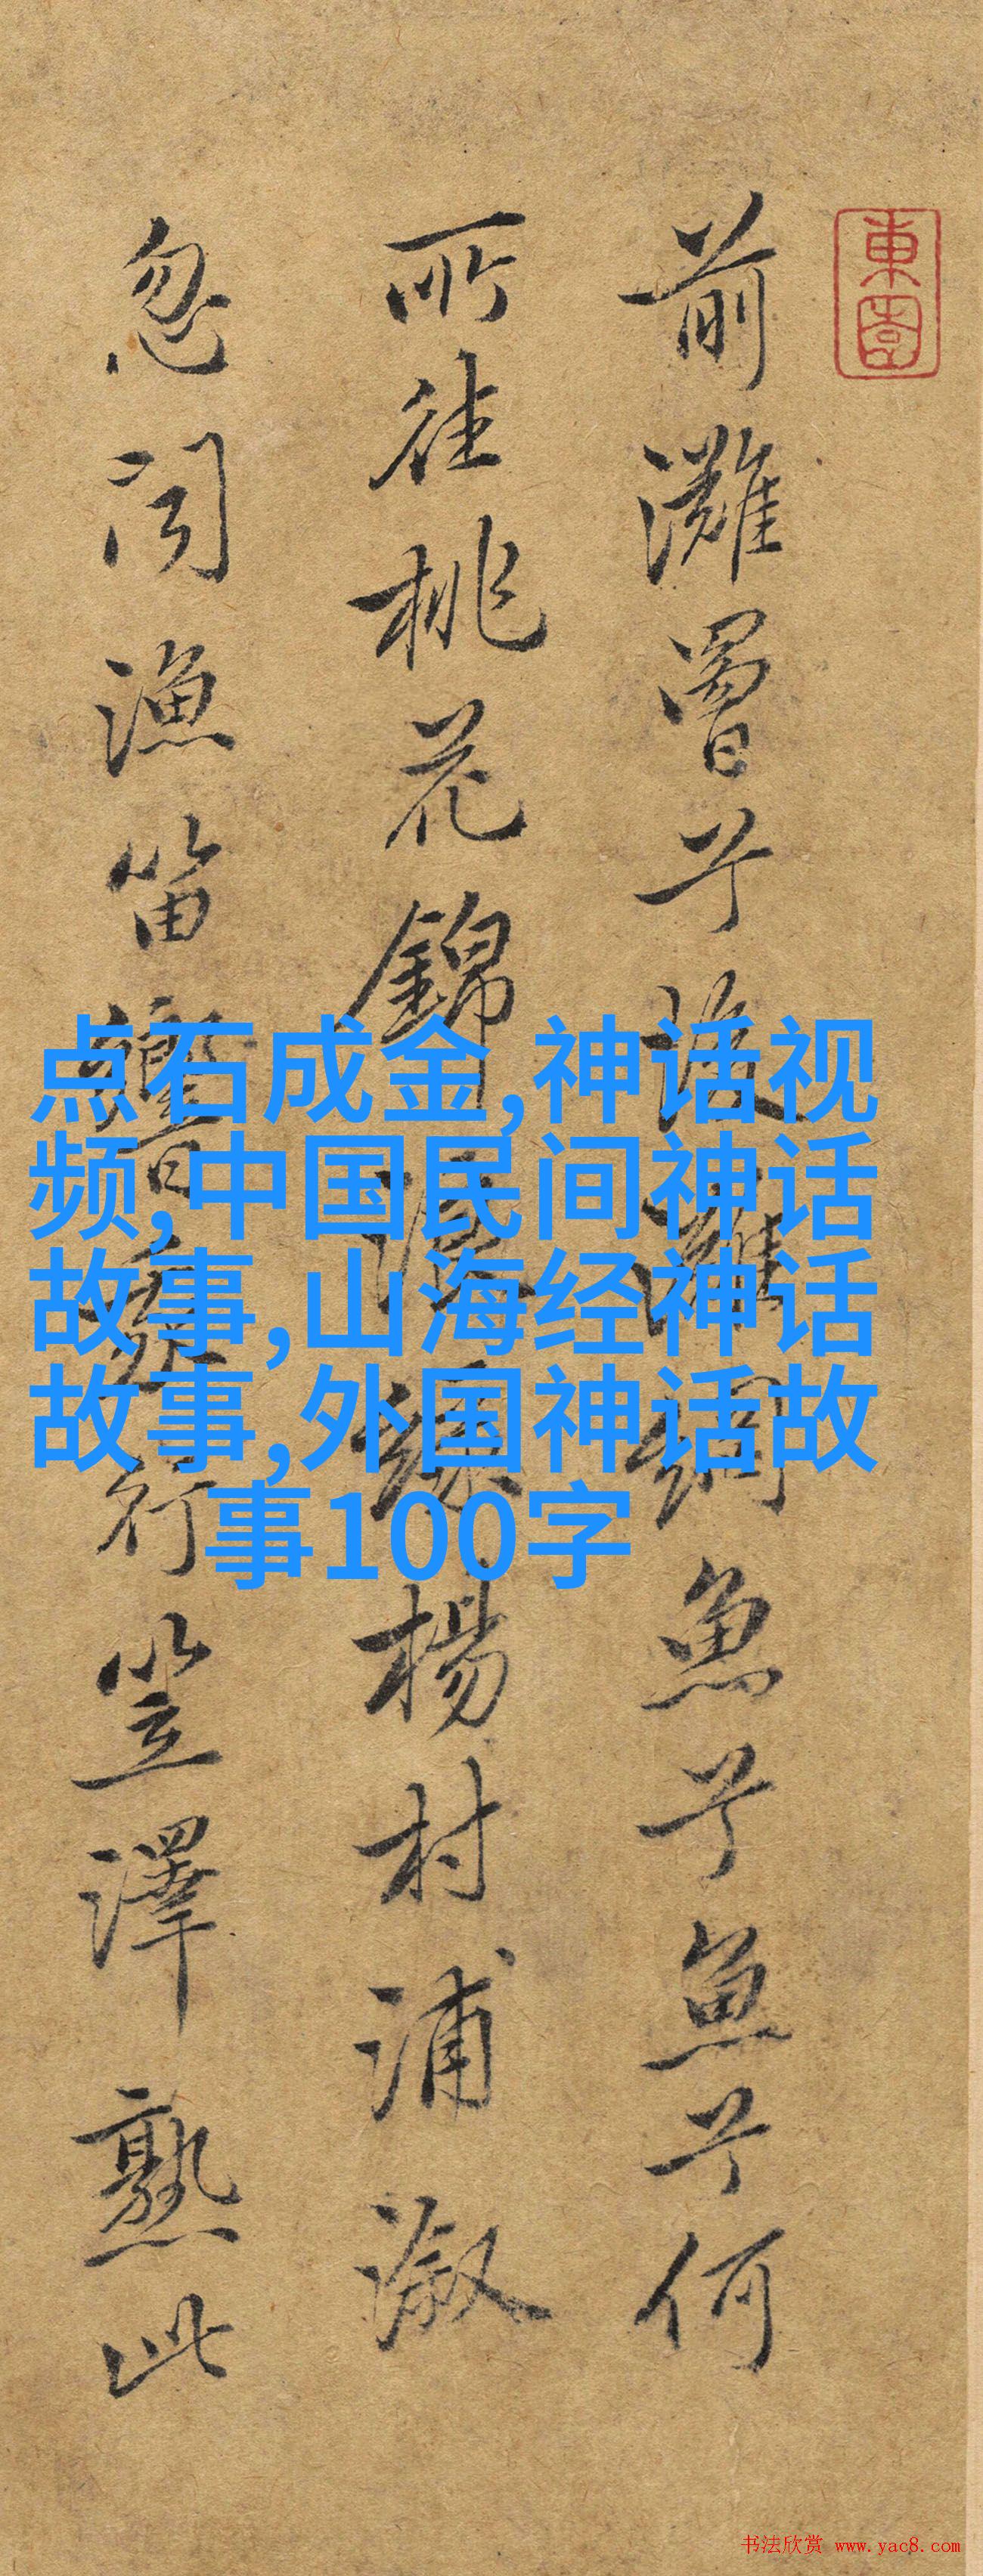 東園
前灘罾兮後灘網魚兮魚兮何
所往桃花錦浪綠楊村浦溆
忽聞漁笛響
行笠澤熟此
点石成金,神话视
频,中国民间神话
故事,山海经神话
故事,外国神话故
事100字
书法欣赏 www.yac8.com